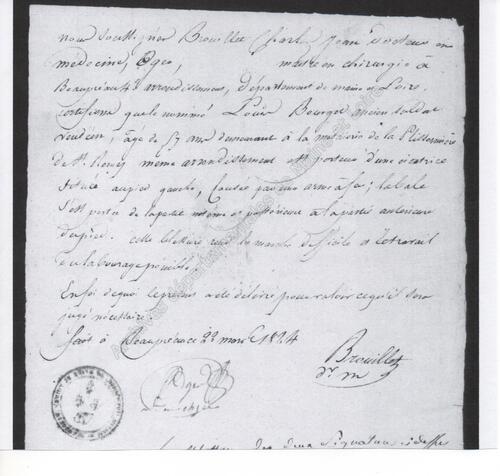 nous soussignés Brouillet Charles Jean docteur en
médecine, Oger, maitre en chirurgie à
Beaupréau 4e arrondissement, département de maine et Loire.
certifions que le nommé Louis Bourget ancien soldat
vendéen, agé de 57 ans demeurant à la métairie de la
de St. même arrondissement est porteur d'une cicatrice
située au pied gauche, causée par une arme à feu; la bale
s'est portée de la partie et postérieure à la partie antérieure
du pied. cette blessure rend la marche difficile et le travail
de labourage pénible.
En foi de quoi le présent a été délivré pour valoir ce qu'il sera
jugé nécessaire.
fait à Beaupréau ce 22 mars 1824
Brouillet
Oger
d. m